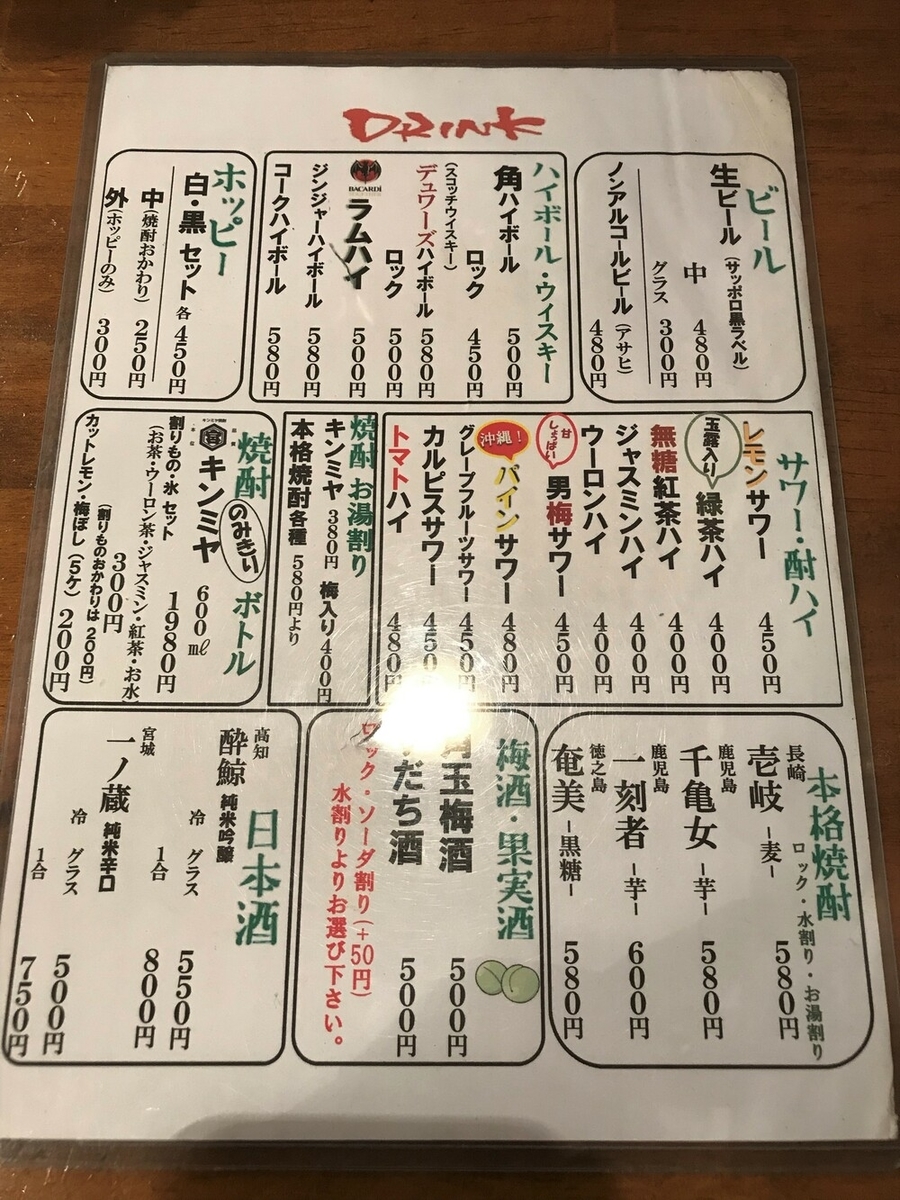 DRINK
ビール
生ビール(サッポロ黒ラベル)
中 480円
グラス 300円
ノンアルコールビール(アサヒ) 480円
ハイボール・ウイスキー
角ハイボール 500円
ロック 450円
(スコッチウイスキー)
デュワーズハイボール 580円
ロック 500円
BACARDÍ
ラムハイ 500円
ジンジャーハイボール 580円
コークハイボール 580円
ホッピー
白・黒 セット 各 450円
中(焼酎おかわり) 250円
外(ホッピーのみ) 300円
サワー・酎ハイ
レモンサワー 450円
玉露入り
緑茶ハイ 400円
無糖紅茶ハイ 400円
ジャスミンハイ 400円
ウーロンハイ 400円
甘しょっぱい
男梅サワー 450円
沖縄!
パインサワー 480円
グレープフルーツサワー 450円
カルピスサワー 450
トマトハイ 480円
焼酎 お湯割り
キンミヤ 380円 梅入り 400円
本格焼酎各種 580円より
焼酎 のみきり ボトル
キンミヤ 600ml
割りもの・氷 セット 1980円
(お茶・ウーロン茶・ジャスミン・紅茶・お水)
300円
(割りものおかわりは 200円)
カットレモン・梅ぼし(5ケ) 200円
本格焼酎
ロック・水割り・お湯割り
長崎
壱岐 -麦- 580円
鹿児島
千亀女 -芋- 580円
鹿児島
一刻者 -芋- 600円
徳之島
奄美 -黒糖- 580円
梅酒・果実酒
玉梅酒 500円
だち酒 500円
ロック・ソーダ割り(+50円)
水割りよりお選び下さい。
日本酒
高知
酔鯨 純米吟醸
冷 グラス 550円
1合 800円
宮城
一ノ蔵 純米辛口
冷 グラス 500円
1合 750円